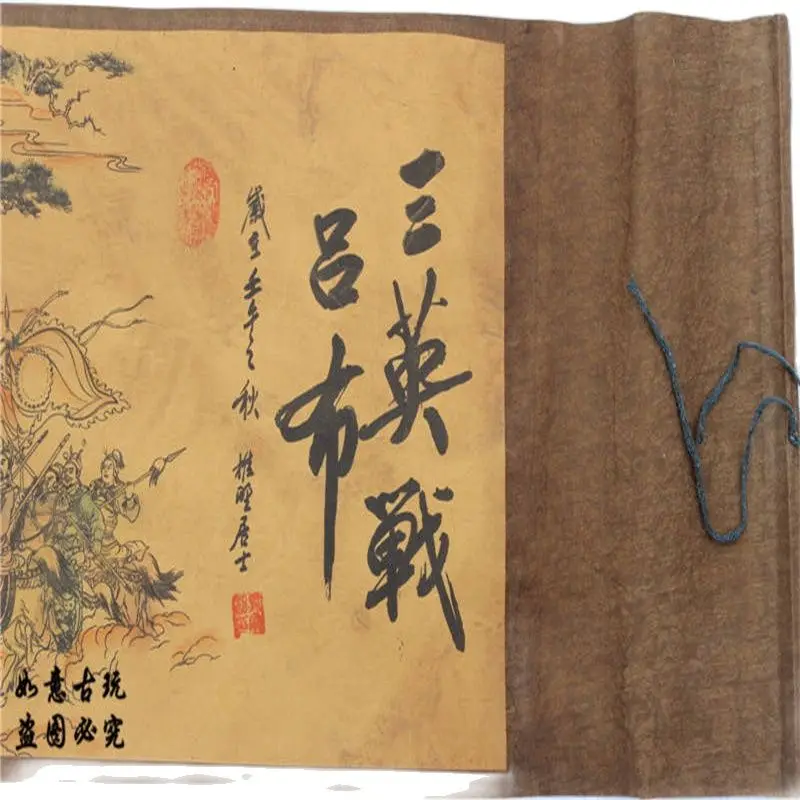 三英戰
呂布
歲在壬午之秋
居士
如意古玩
盗图必究